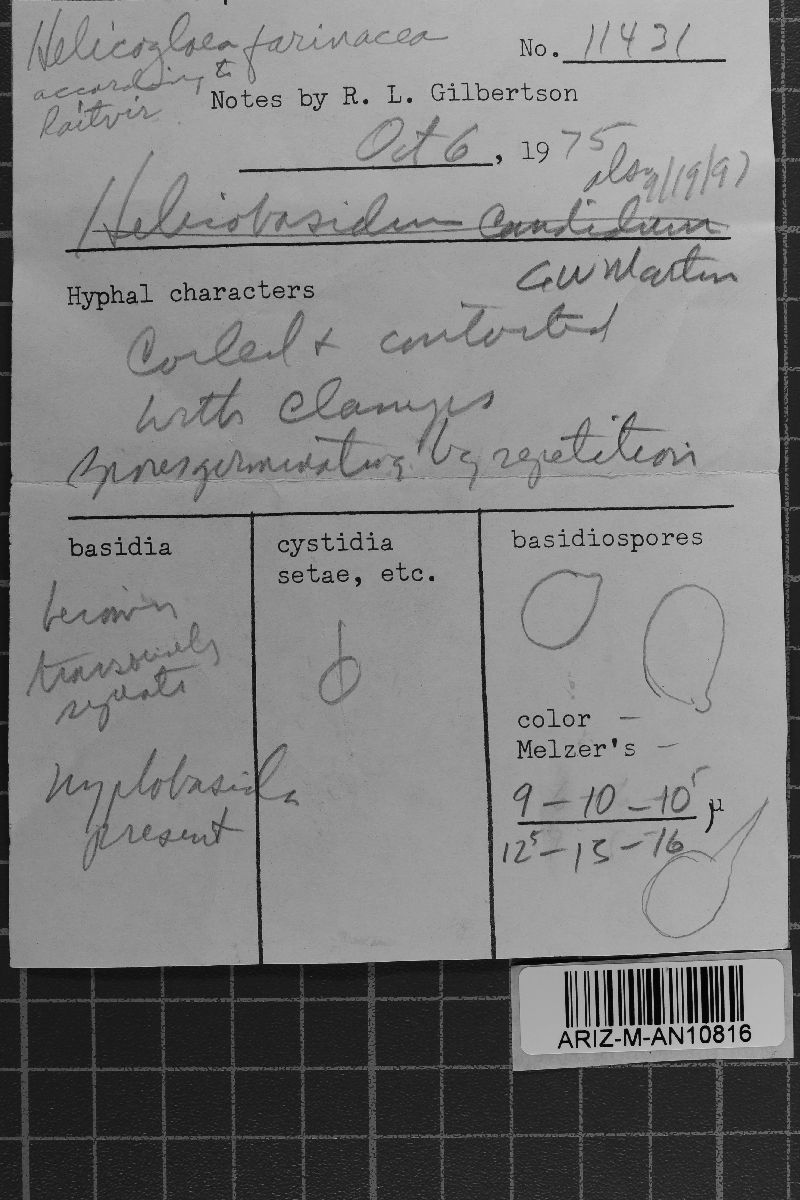 Helicogloea farinacea
according to
Raitvir
No. 11431
Notes by R. L. Gilbertson
Oct 6, 1975
also 9/19/97
Helicobasidium candidum
GW Martin
Hyphal characters
Coiled + contorted
with clamps
Spores germinating by repetition
basidia
cystidia
setae, etc.
basidiospores
transversely
septate
present
color —
Melzer's —
9 — 10 — 10⁵ μ
12⁵ — 15 — 16
ARIZ-M-AN10816